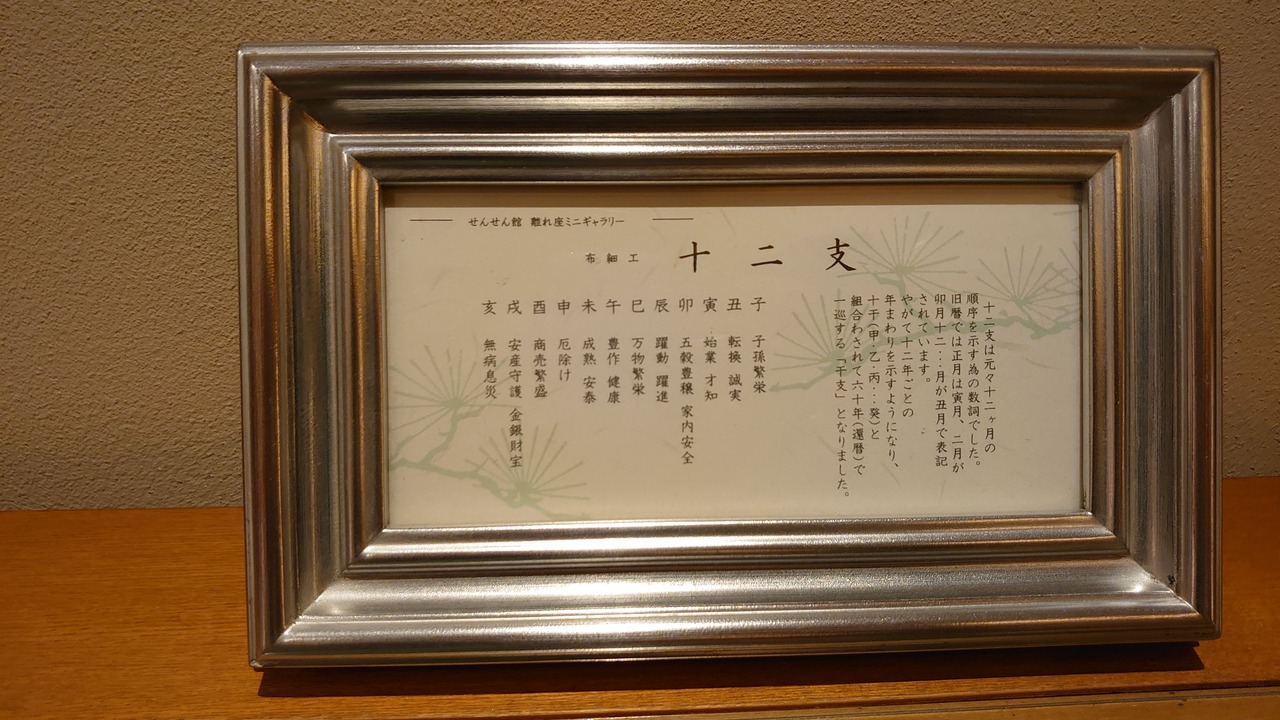 せんせん館 離れ座ミニギャラリー
布細工 十二支
十二支は元々十二ヶ月の
順序を示す為の数詞でした。
旧暦では正月は寅月、二月が
卯月十二‥月が丑月で表記
されています。
やがて十二年ごとの
年まわりを示すようになり、
十干(甲・乙・丙‥癸)と
組合わされて六十年(還暦)で
一巡する「干支」となりました。
子 子孫繁栄
丑 転換 誠実
寅 始業 才知
卯 五穀豊穣 家内安全
辰 躍動 躍進
巳 万物繁栄
午 豊作 健康
未 成熟 安泰
申 厄除け
酉 商売繁盛
戌 安産守護 金銀財宝
亥 無病息災